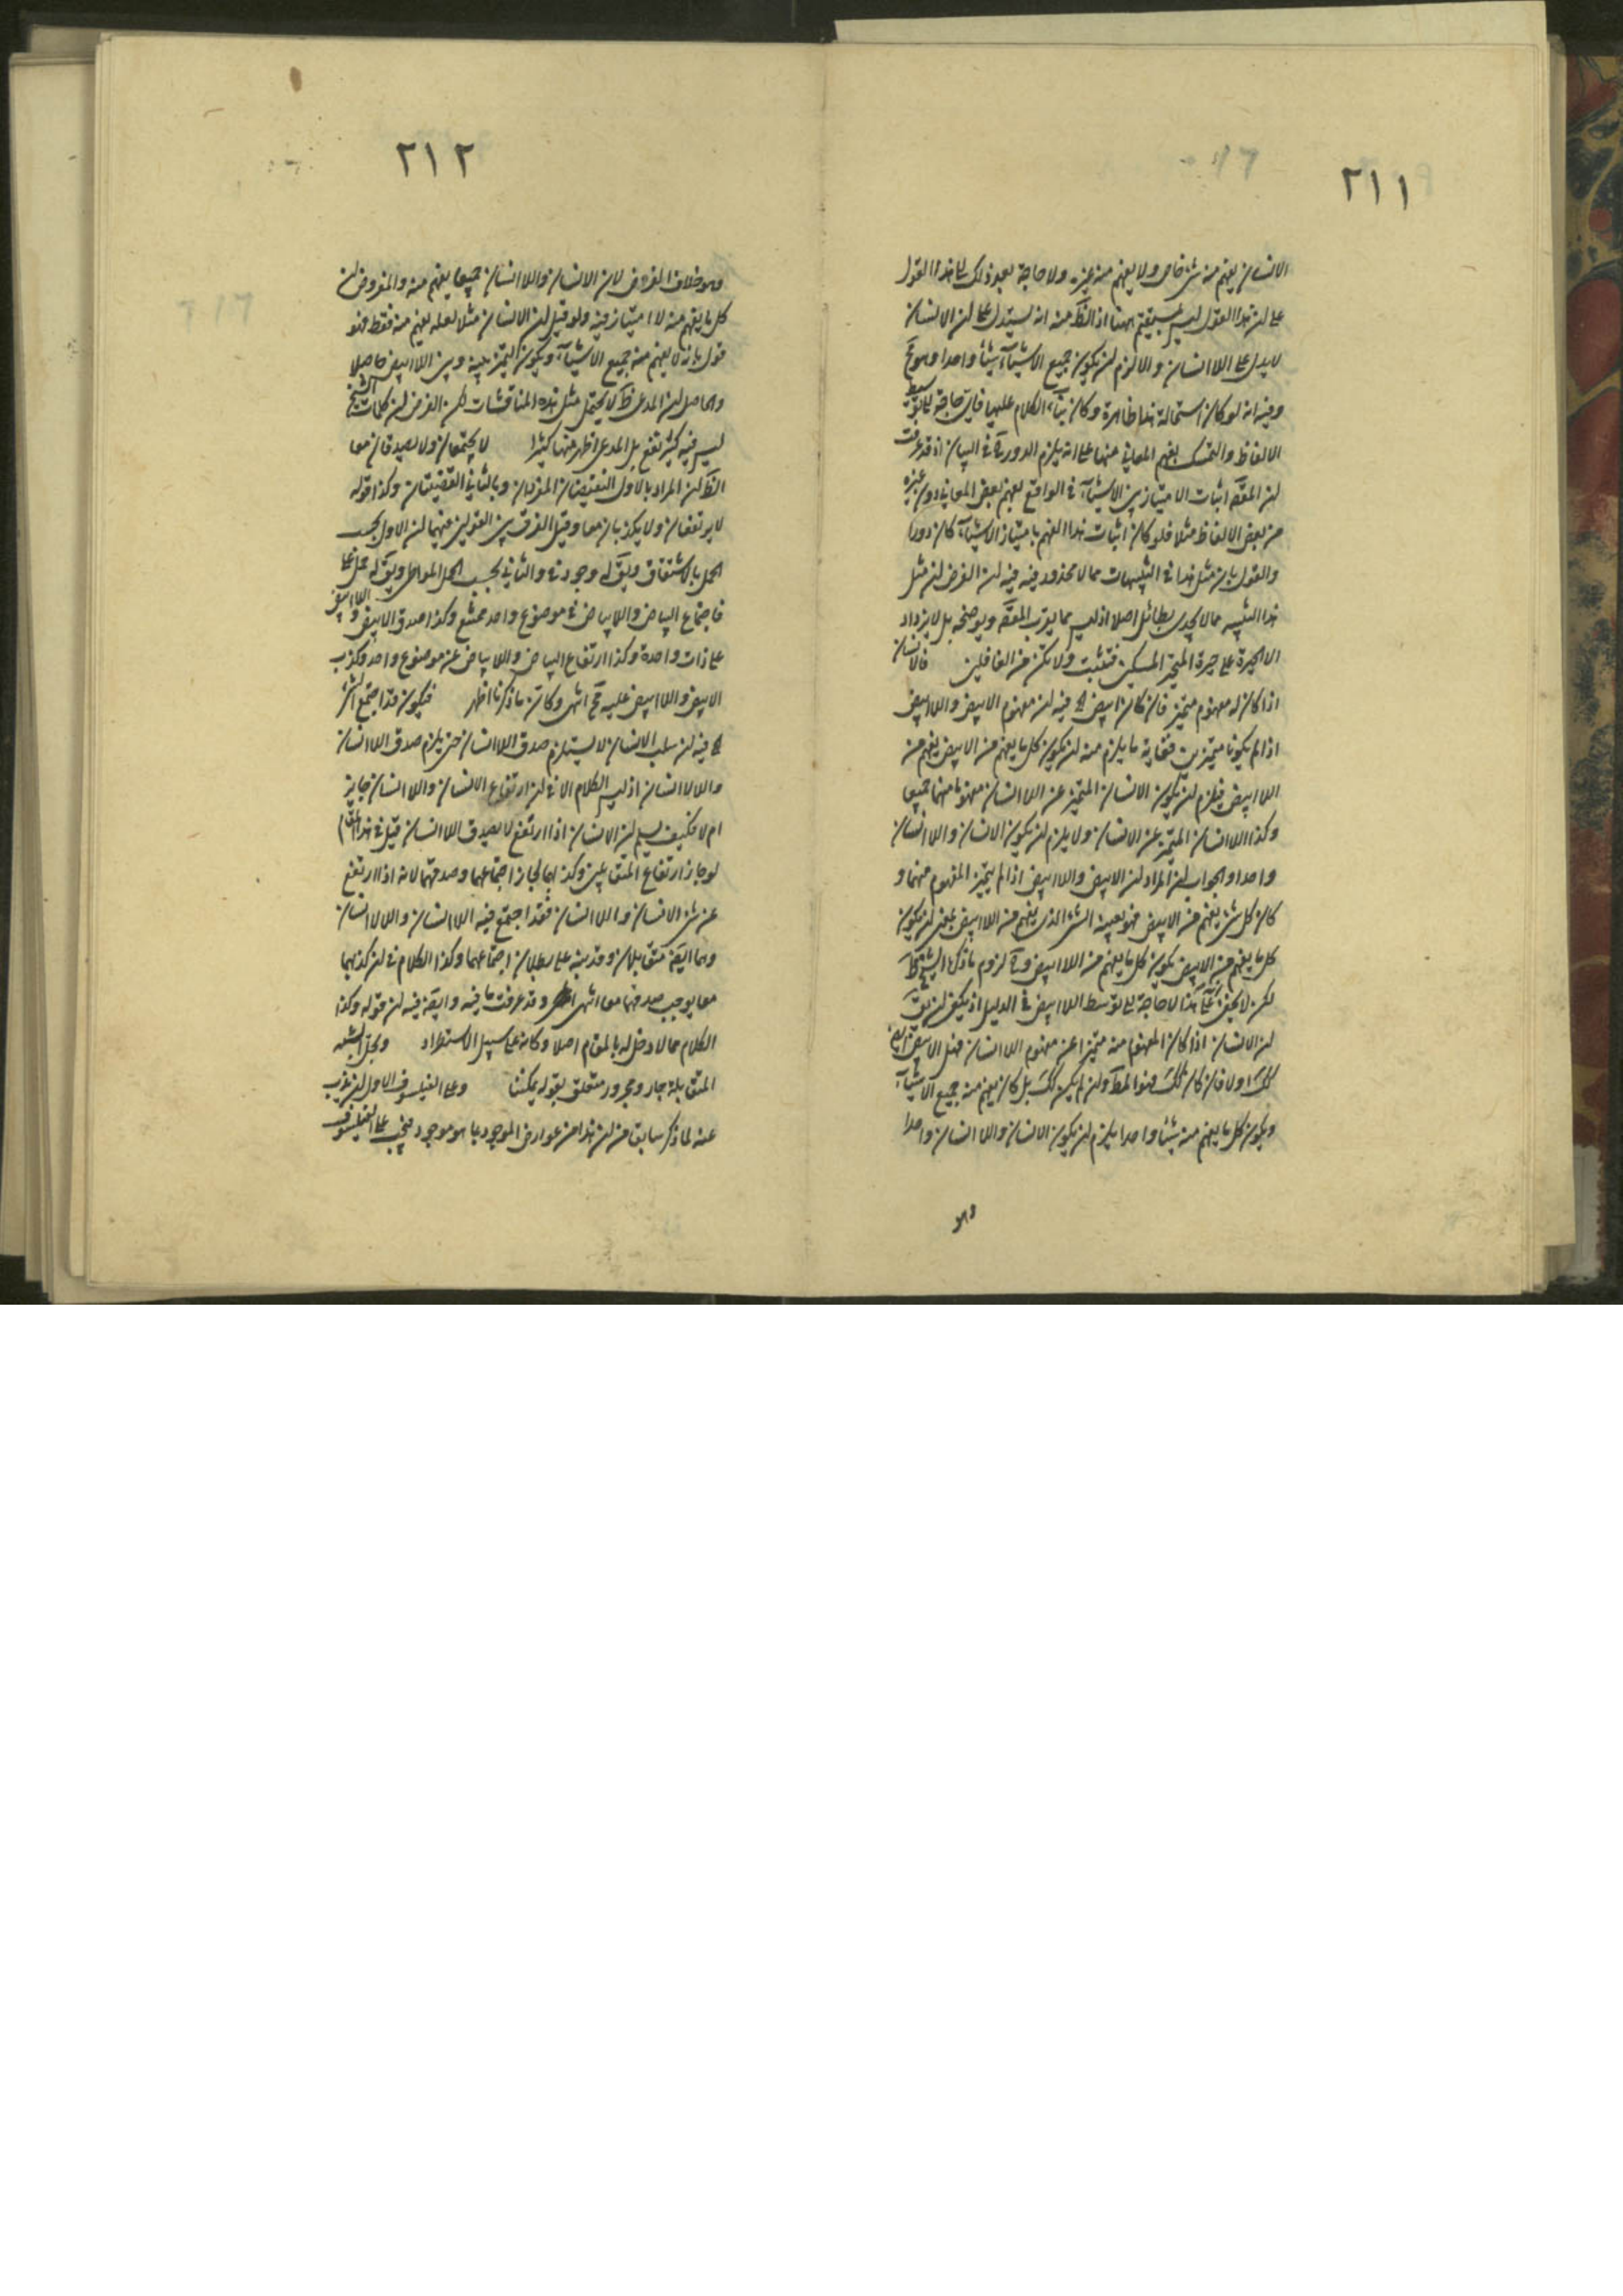 ٢١١
الانسان يفهم منه شئ خاص ولا يفهم منه غيره ولا حاجة بعد ذلك الى هذا القول
على ان هذا القول ليس بمستقيم ههنا اذ الظ منه انه يستدل على ان الانسان
لا يدل على اللاانسان والا لزم ان يكون جميع الاشيآء شيئا واحدا وهو مح
وفيه انه لو كان استحالة هذا ظاهرة وكان بنآء الكلام عليها فاى حاجة الى توسيط
الالفاظ والتمسك بفهم المعانى منها على انه يلزم الدور ح فى البيان اذ قد عرفت
ان المقصَ اثبات الامتياز بين الاشيآء فى الواقع بفهم بعض المعانى دون غيره
من بعض الالفاظ مثلا فلو كان اثبات هذا الفهم بامتياز الاشيآء كان دورا
والقول بان مثل هذا فى التنبيهات مما لا محذور فيه فيه ان الغرض ان مثل
هذا التنبيه مما لا يجدى بطائل اصلا اذ ليس مما يقرب المقصَ ويوضحه بل لا يزداد
الا حيرة على حيرة المتحير المسكين فتثبت ولا تكن من الغافلين فالانسان
اذا كان له مفهوم متميز فان كان ابيض الخ فيه ان مفهوم الابيض واللاابيض
اذا لم يكونا متميزين فغاية ما يلزم منه ان يكون كل ما يفهم من الابيض يفهم من
اللاابيض فيلزم ان يكون الانسان المتميز عن اللاانسان مفهوما منهما جميعا
وكذا اللاانسان المتميز عن الانسان ولا يلزم ان يكون الانسان واللاانسان
واحدا والجواب ان المراد ان الابيض واللاابيض اذا لم يتميز المفهوم منهما و
كان كل شئ يفهم من الابيض فهو بعينه الشئ الذى يفهم من اللاابيض بمعنى ان يكون
كل ما يفهم من الابيض يكون كل ما يفهم من اللاابيض وح لزوم ما ذكره الشيخ ظ
لكن لا يخفى انه على هذا لا حاجة الى توسط اللاابيض فى الدليل اذ يكفى ان يقَ
ان الانسان اذا كان المفهوم منه متميزا عن مفهوم اللاانسان فهل الابيض ايضَ
كك اولا فان كان كك فهو المط وان لم يكن كك بل كان يفهم منه جميع الاشيآء
ويكون كل ما يفهم منه شيئا واحدا يلزم ان يكون الانسان واللاانسان واحدا
وهو
٢١٢
وهو خلاف الفرض لان الانسان واللاانسان جميعا يفهم منه والمفروض ان
كل ما يفهم منه لا امتياز فيه ولو قيل ان الانسان مثلا لعله يفهم منه فقط فهو
قول بانه لا يفهم منه جميع الاشيآء ويكون التميز بينه وبين اللاابيض حاصلا
والحاصل ان المدعى ظ لا يحتمل مثل هذه المناقشات لكن الغرض ان كلمات الشيخ
ليس فيه كثير نفع بل المدعى اظهر منها كثيرا لا يجتمعان ولا يصدقان معا
الظ ان المراد بالاول النقيضان المفردان وبالثانى القضيتان وكذا قوله
لا يرتفعان ولا يكذبان معا وقيل الفرق بين القولين منهما ان الاول بحسب
الحمل بالاشتقاق ويقَ له وجود فى والثانى بحسب الحمل المواطى ويقَ له حمل على
فاجتماع البياض واللابياض فى موضوع واحد ممتنع وكذا صدق الابيض واللاابيض
على ذات واحدة وكذا ارتفاع البياض واللابياض عن موضوع واحد وكذب
الابيض واللاابيض عليه مح انتهى وكان ما ذكرنا اظهر فيكون قد اجتمع الشئ
الخ فيه ان سلب الانسان لا يستلزم صدق اللاانسان حتى يلزم صدق اللاانسان
واللالاانسان اذ ليس الكلام الا فى ان ارتفاع الانسان واللاانسان جايز
ام لا فكيف يسلم ان الانسان اذا ارتفع لا يصدق اللاانسان قيل فى هذا المقام
لو جاز ارتفاع المتقابلين وكذبهما لجاز اجتماعهما وصدقهما لانه اذا ارتفع
عن شئ الانسان واللاانسان فقد اجتمع فيه اللاانسان واللالاانسان
وهما ايضَ متقابلان وقد نبه على بطلان اجتماعهما وكذا الكلام فى ان كذبهما
معا يوجب صدقهما معا انتهى وقد عرفت ما فيه وايضَ فيه ان قوله وكذا
الكلام مما لا دخل له بالمقام اصلا وكانه على سبيل الاستطراد وبحل الشبه
المتقابلة جار ومجرور متعلق بقوله يمكننا وعلى الفيلسوف الاول ان يذب
عنه لما ذكر سابقا من ان هذا من عوارض الموجود بما هو موجود فيجب على الفيلسوف